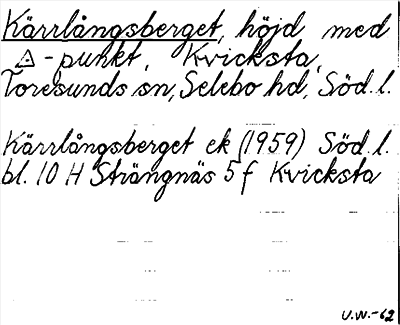 Kärrlångsberget, höjd med
△-punkt, Kvicksta,
Toresunds sn, Selebo hd, Söd. l.
Kärrlångsberget ek (1959) Söd. l.
bl. 10 H Strängnäs 5 f Kvicksta
U.W.-62